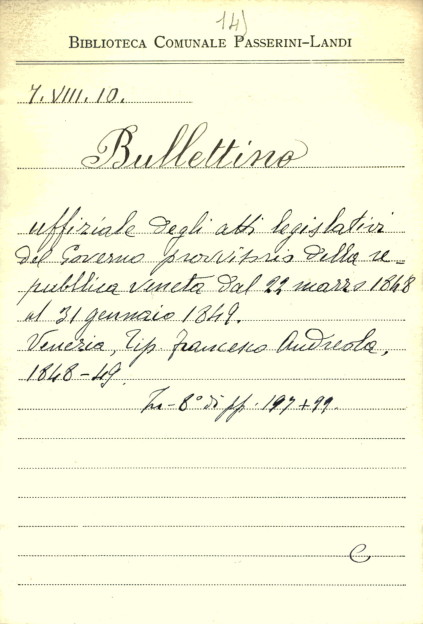 14)
BIBLIOTECA COMUNALE PASSERINI-LANDI
7. VIII. 10.
Bullettino
uffiziale degli atti legislativi
del Governo provvitorio della re-
pubblica veneta dal 22 marzo 1848
al 31 gennaio 1849.
Venezia, Tip. Francesco Andreola,
1848-49.
In-8° di pp. 197+99.
C